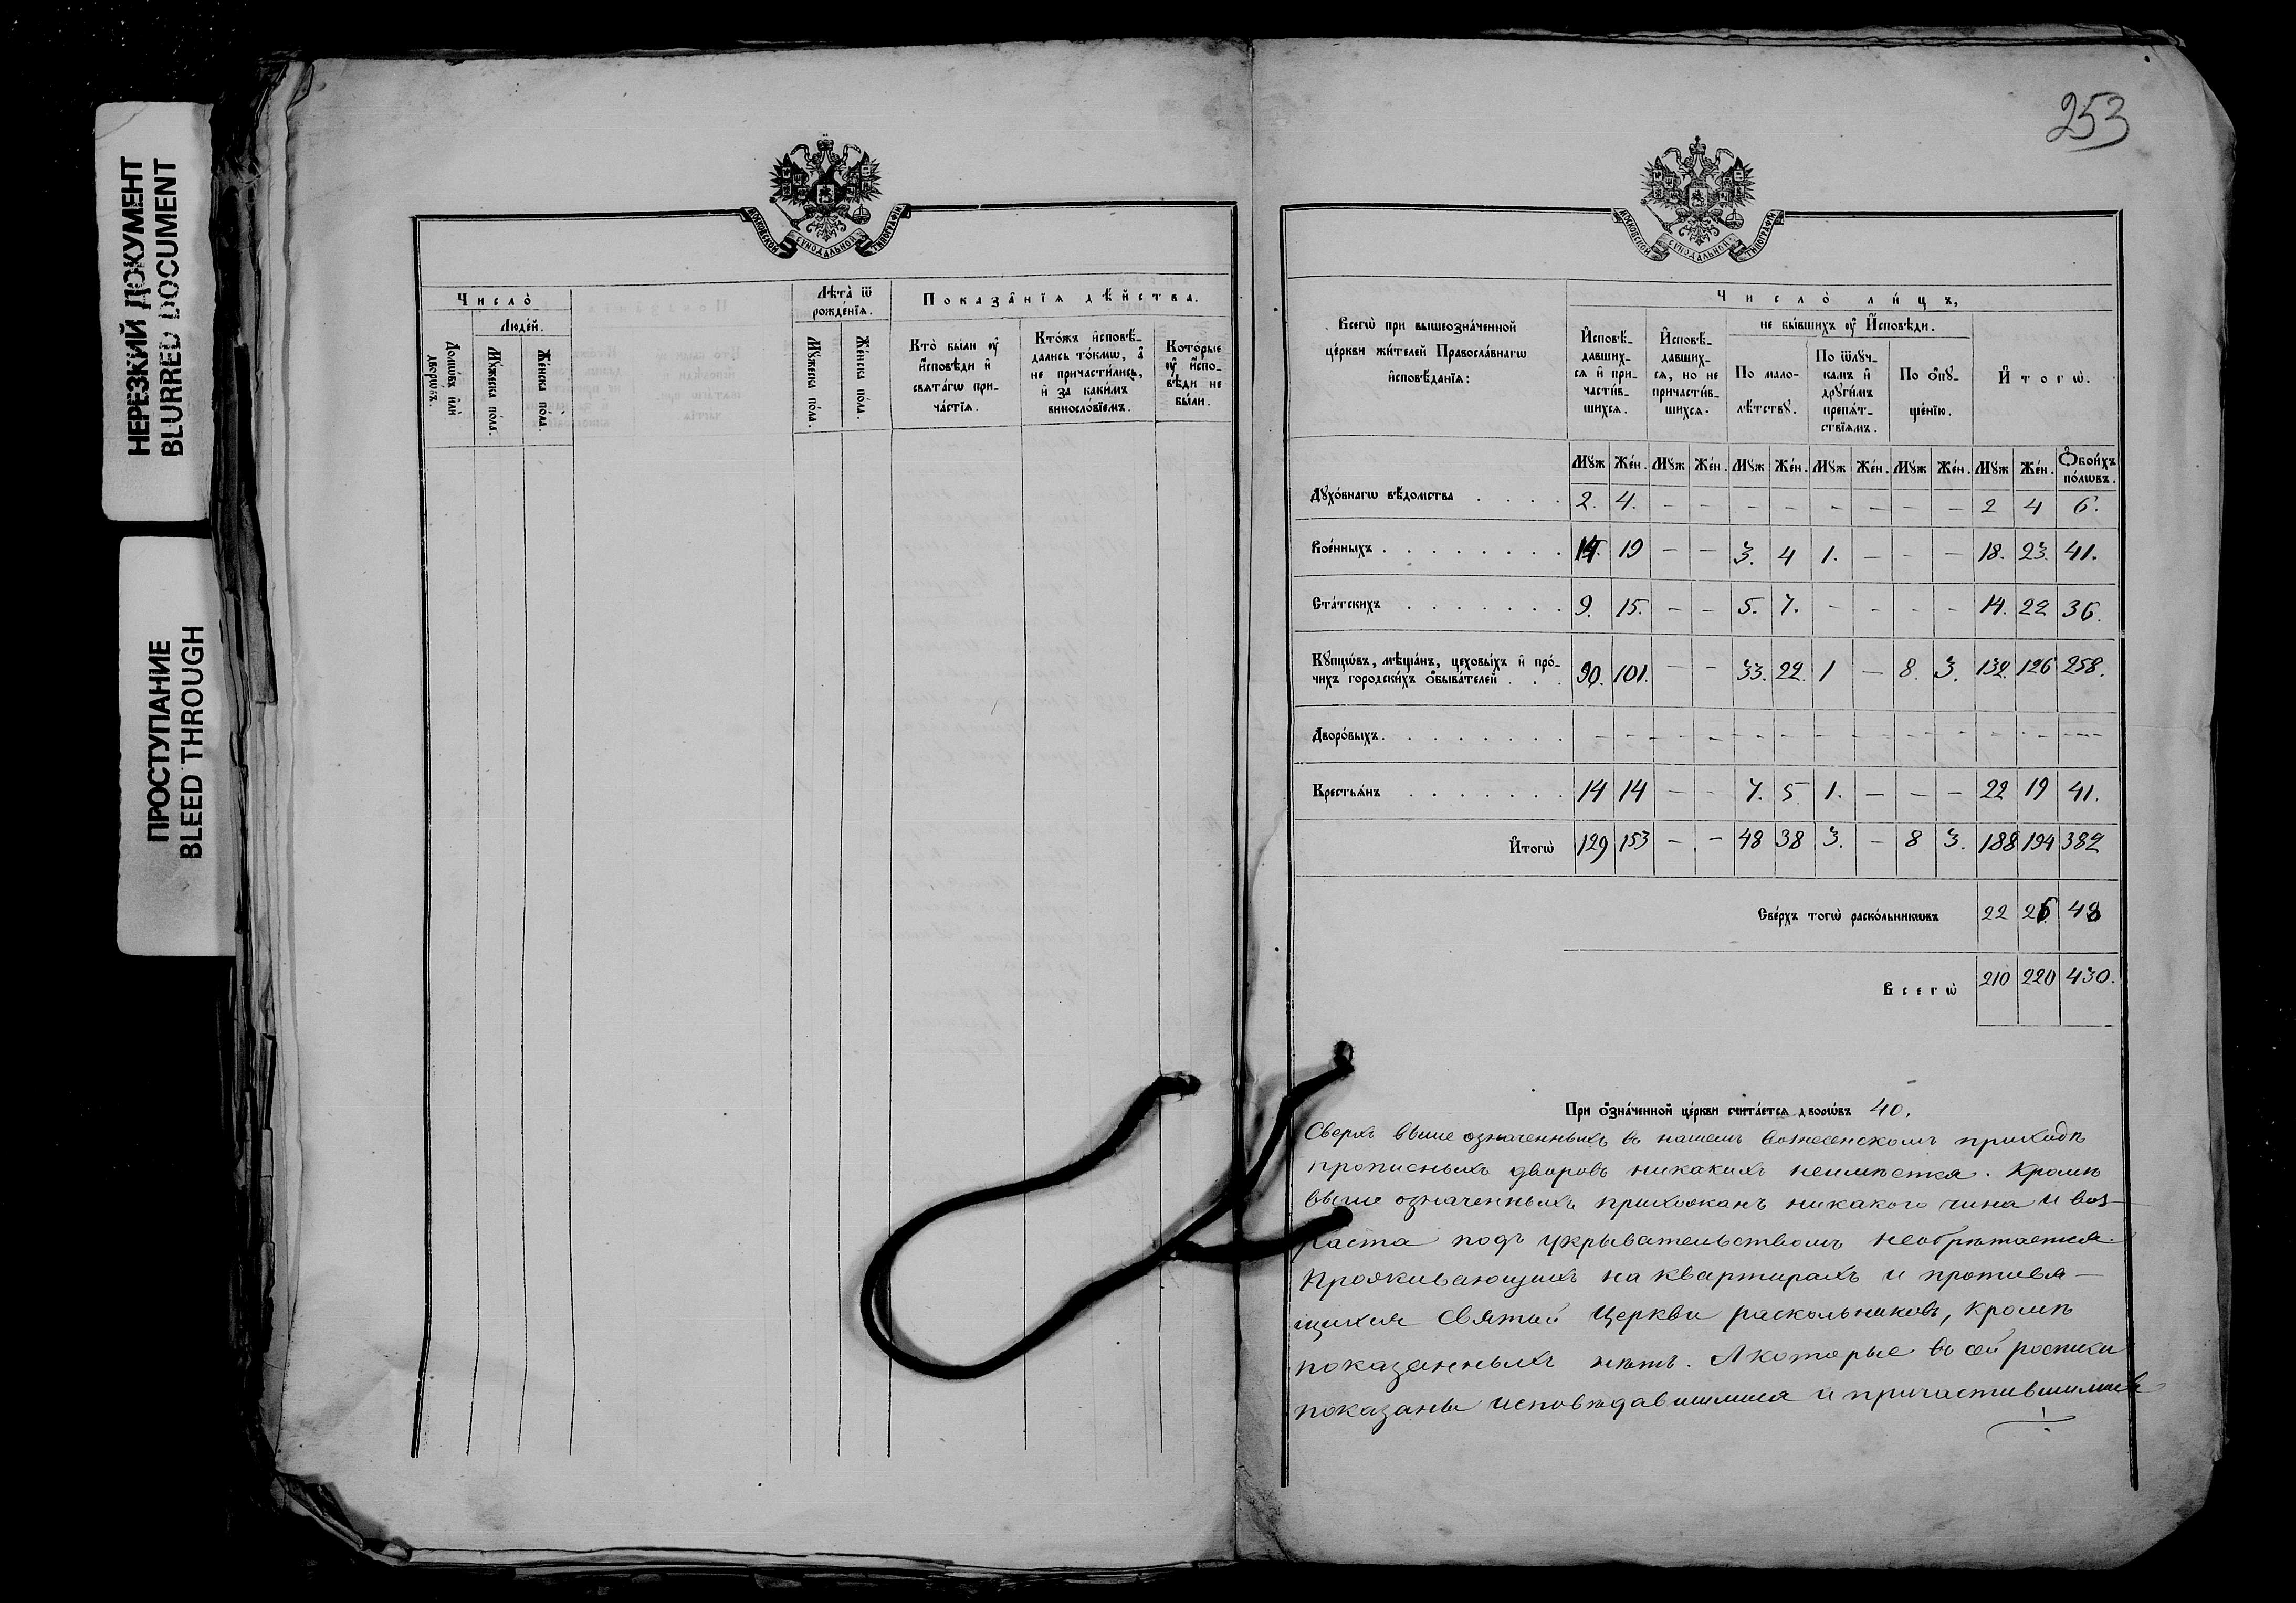 НЕРЕЗКИЙ ДОКУМЕНТ
BLURRED DOCUMENT
ПРОСТУПАНИЕ
BLEED THROUGH
МОСКОВСКОЙ СѴНОДАЛЬНОЙ ТИПОГРАФІИ
Число̀
Люде́й.
Домѡ́въ и҆лѝ дворѡ́въ.
Мꙋ́жеска по́ла.
Же́нска по́ла.
Лѣ́та ѿ рожде́нїѧ.
Мꙋ́жеска по́ла.
Же́нска по́ла.
Показа̑нїѧ дѣ́йства.
Кто̀ бы́ли ᲂу҆ и҆сповѣди и҆ свѧта́гѡ прича́стїѧ.
Кто́жъ и҆сповѣдались то́кмѡ, а҆ не причасти́лись, и҆ за каки́мъ винословїемъ.
Кото́рые ᲂу҆ и҆сповѣди не бы́ли.
253
МОСКОВСКОЙ СѴНОДАЛЬНОЙ ТИПОГРАФІИ
Всегѡ̀ при вышеозна́ченной
це́ркви жи́телей Правосла́внагѡ
и҆сповѣ́данїѧ:
Число̀ ли́цъ,
И҆сповѣдавшихсѧ и҆ причасти́вшихсѧ.
И҆сповѣдавшихсѧ, но не причасти́вшихсѧ.
не бы́вшихъ ᲂу҆ И҆сповѣди.
По мало-лѣтствꙋ.
По ѿлꙋчкамъ и҆ дрꙋги̑мъ препѧ́тствїѧмъ.
По ѡ҆пꙋще́нїю.
И҆тогѡ̀.
Мꙋж Же́н. Мꙋж Же́н. Мꙋж Же́н. Мꙋж Же́н. Мꙋж Же́н. Мꙋж Же́н. Ѻ҆бои́хъ по́лѡвъ.
Дꙋхо́внагѡ вѣ́домства . . . . 2. 4. – – – – – – – – 2 4 6.
Вое́нныхъ . . . . . . . . 14. 19 – – 3. 4 1. – – – 18. 23. 41.
Ста́тскихъ . . . . . . . 9. 15. – – 5. 7. – – – – 14. 22 36.
Кꙋпцѡ́въ, мѣща́нъ, цеховы́хъ и҆ про́-
чихъ городски́хъ ѡ҆быва́телей . . . 90. 101. – – 33. 22. 1 – 8. 3. 132. 126 258.
Дворо́выхъ . . . . . . . . – – – – – – – – – – – – –
Крестьѧ́нъ . . . . . . . 14 14 – – 7. 5. 1. – – – 22 19 41.
И҆тогѡ̀ 129 153 – – 48 38 3. – 8 3. 188 194 382
Све́рхъ тогѡ̀ раско́льникѡвъ 22 26. 48
Всегѡ̀ 210 220 430.
При ѡ҆зна́ченной це́ркви счита́етсѧ дворѡ́въ 40.
Сверхъ выше означенныхъ въ нашемъ вознесенскомъ приходѣ
прописныхъ дворовъ никакихъ неимѣется. Кромѣ
выше означенныхъ прихожанъ никакого чина и воз-
раста подъ укрывательствомъ необрѣтается.
Проживающихъ на квартирахъ и противя-
щихся Святой Церкви раскольниковъ, кромѣ
показанныхъ нѣтъ. А которые въ сей росписи
показаны исповѣдавшимися и причастившимися